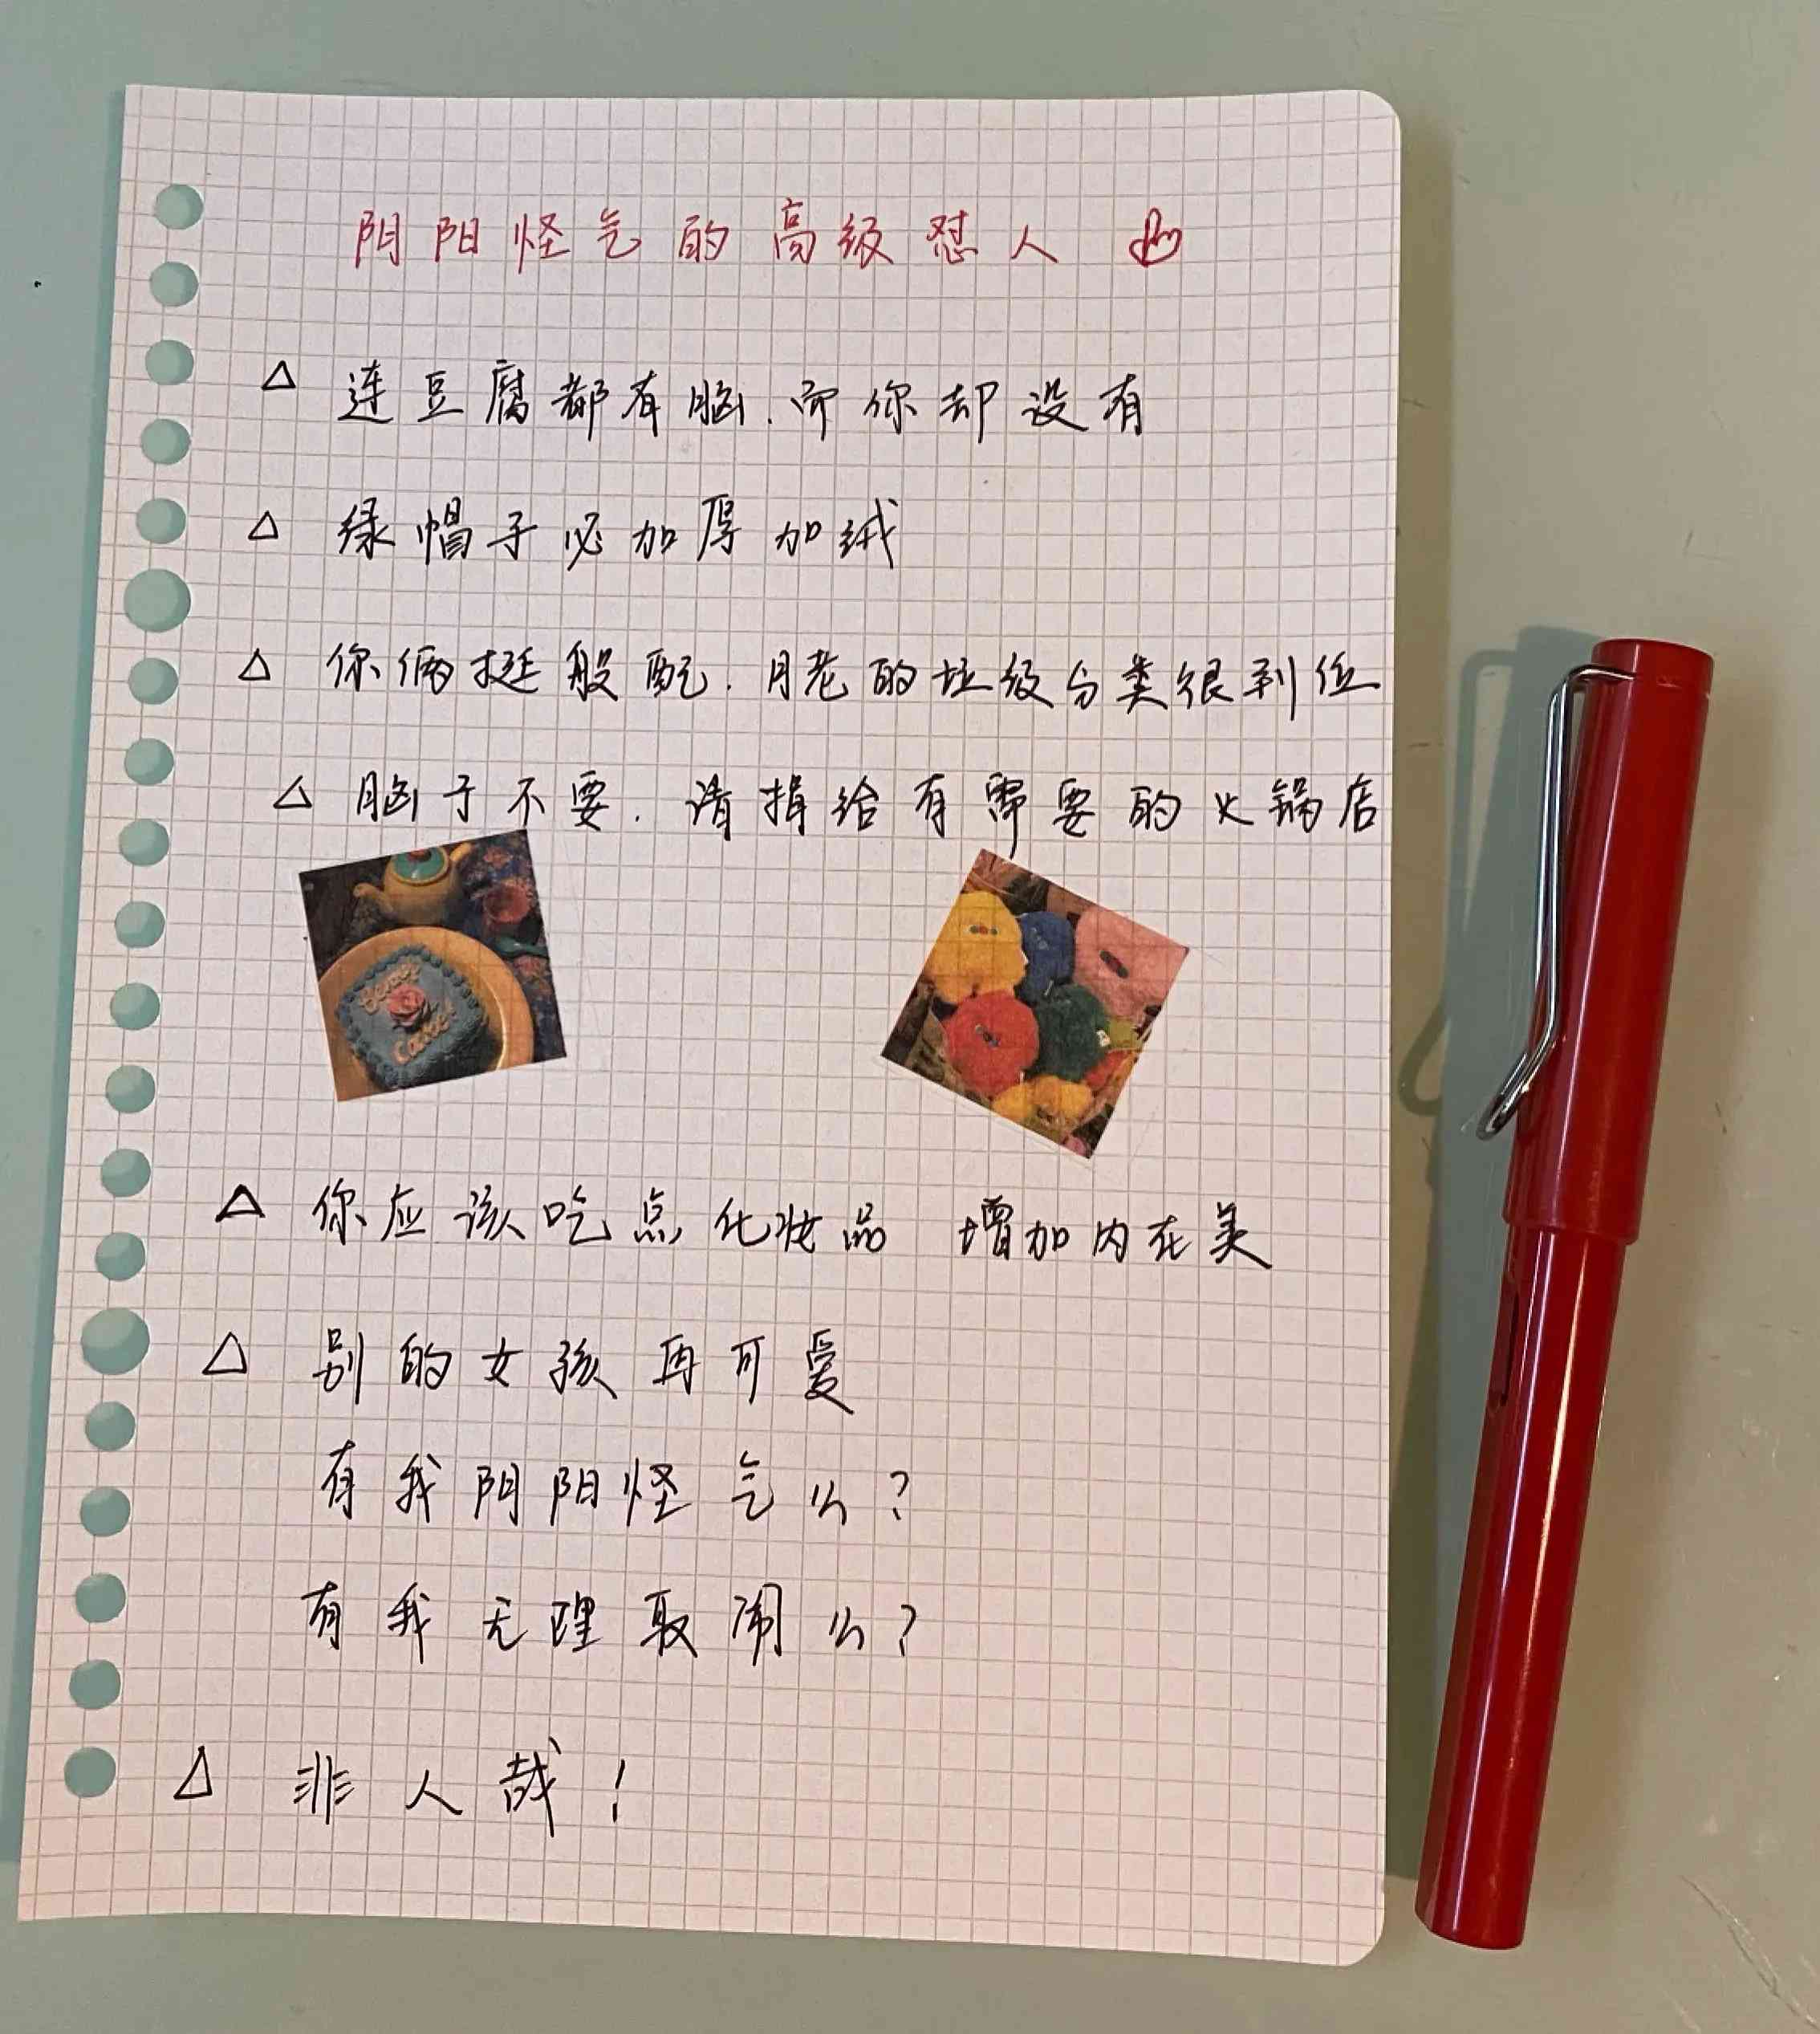 阴阳怪气的高级怼人
△ 连豆腐都有脑.而你却没有
△ 绿帽子必加厚加绒
△ 你俩挺般配.月老的垃圾分类很到位
△ 脑子不要.请捐给有需要的火锅店
△ 你应该吃点化妆品 增加内在美
△ 别的女孩再可爱
有我阴阳怪气么?
有我无理取闹么?
△ 非人哉!